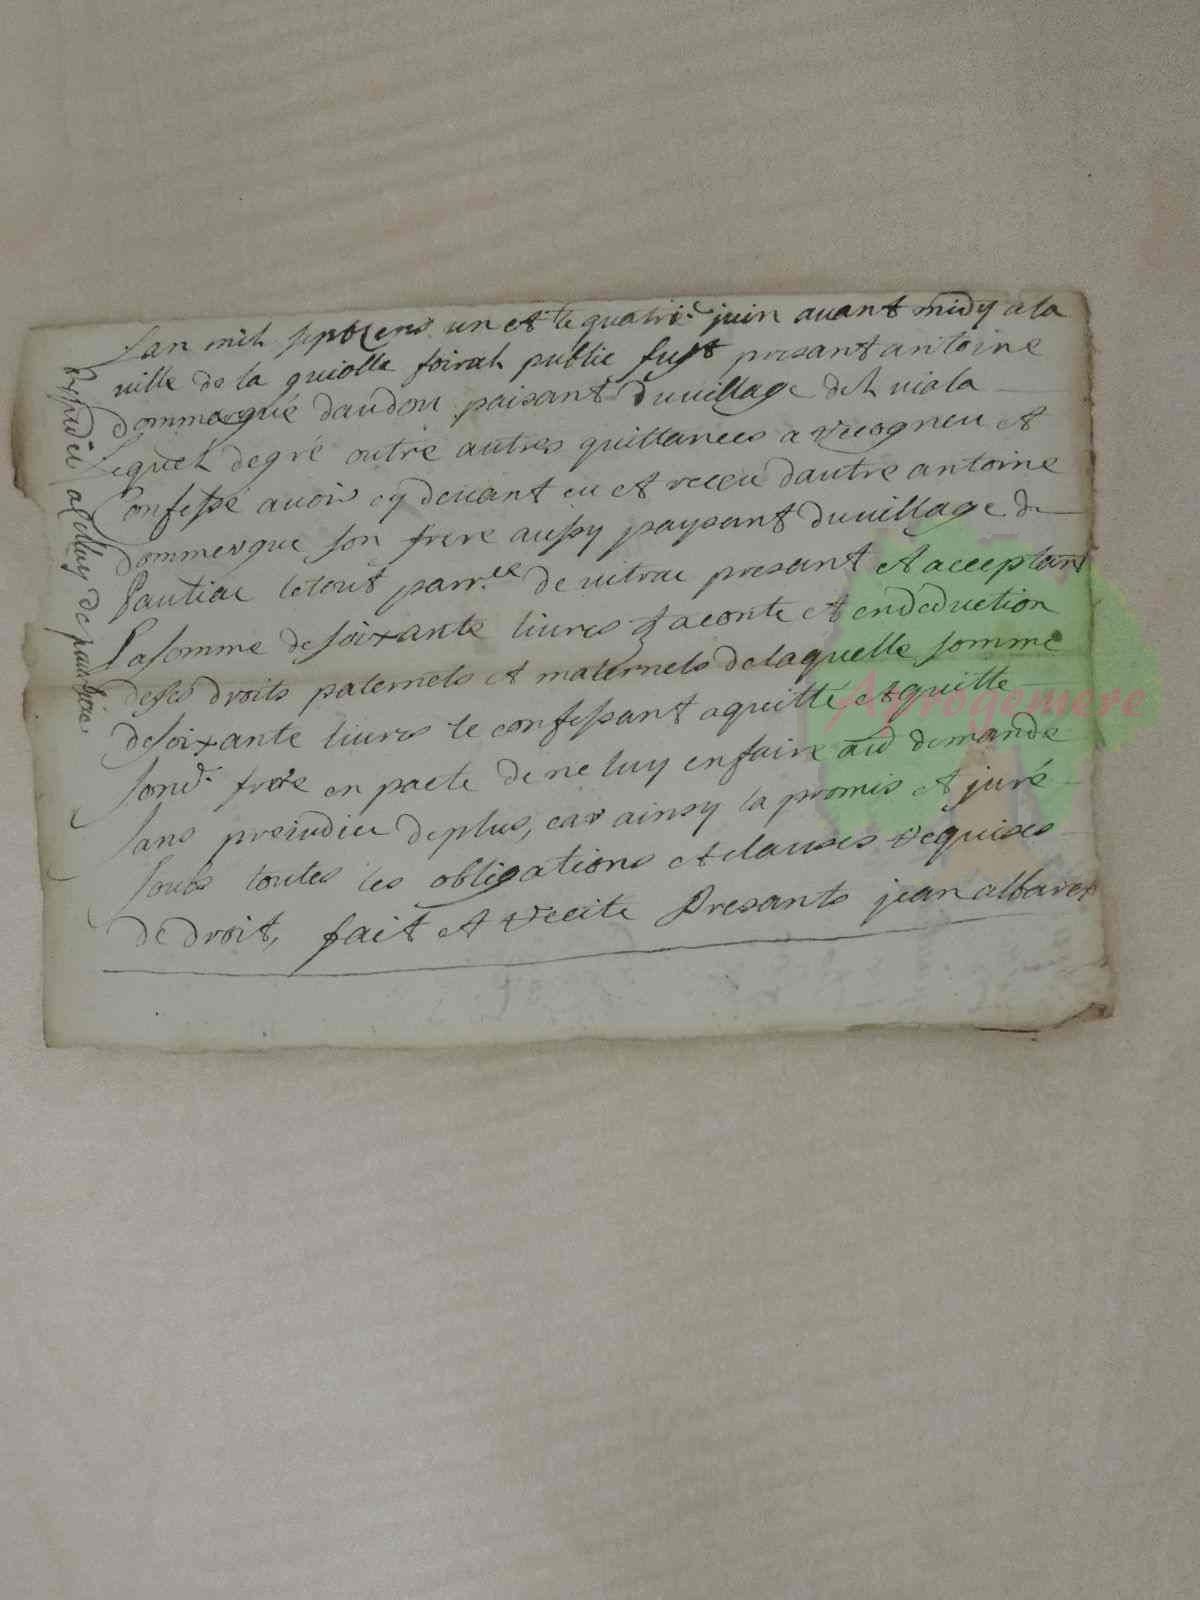 Lan mil sept cens un et le quatrie. juin avant midy a la
ville de la guiolle foiral public fust presant antoine
dommergué daudou paisant du village del viala
Lequel de gré outre autres quittances a recogneu et
Confessé avoir cy devant eu et receu dautre antoine
dommergue son frere aussy paysant du village de
Pautiac le tout parr.lle de vitrac presant et acceptant
La somme de soixante livres a conte et en deduction
de ses droits paternels et maternels de laquelle somme
de soixante livres le confessant aquitté et quitte
sond. frere en pacte de ne luy en faire demande
sans preiudice de plus, car ainsy la promis et juré
soubs toutes les obligations et clauses requises
de droit, fait et recité Presants jean albaret
Expedié a celluy de
Aprogemere